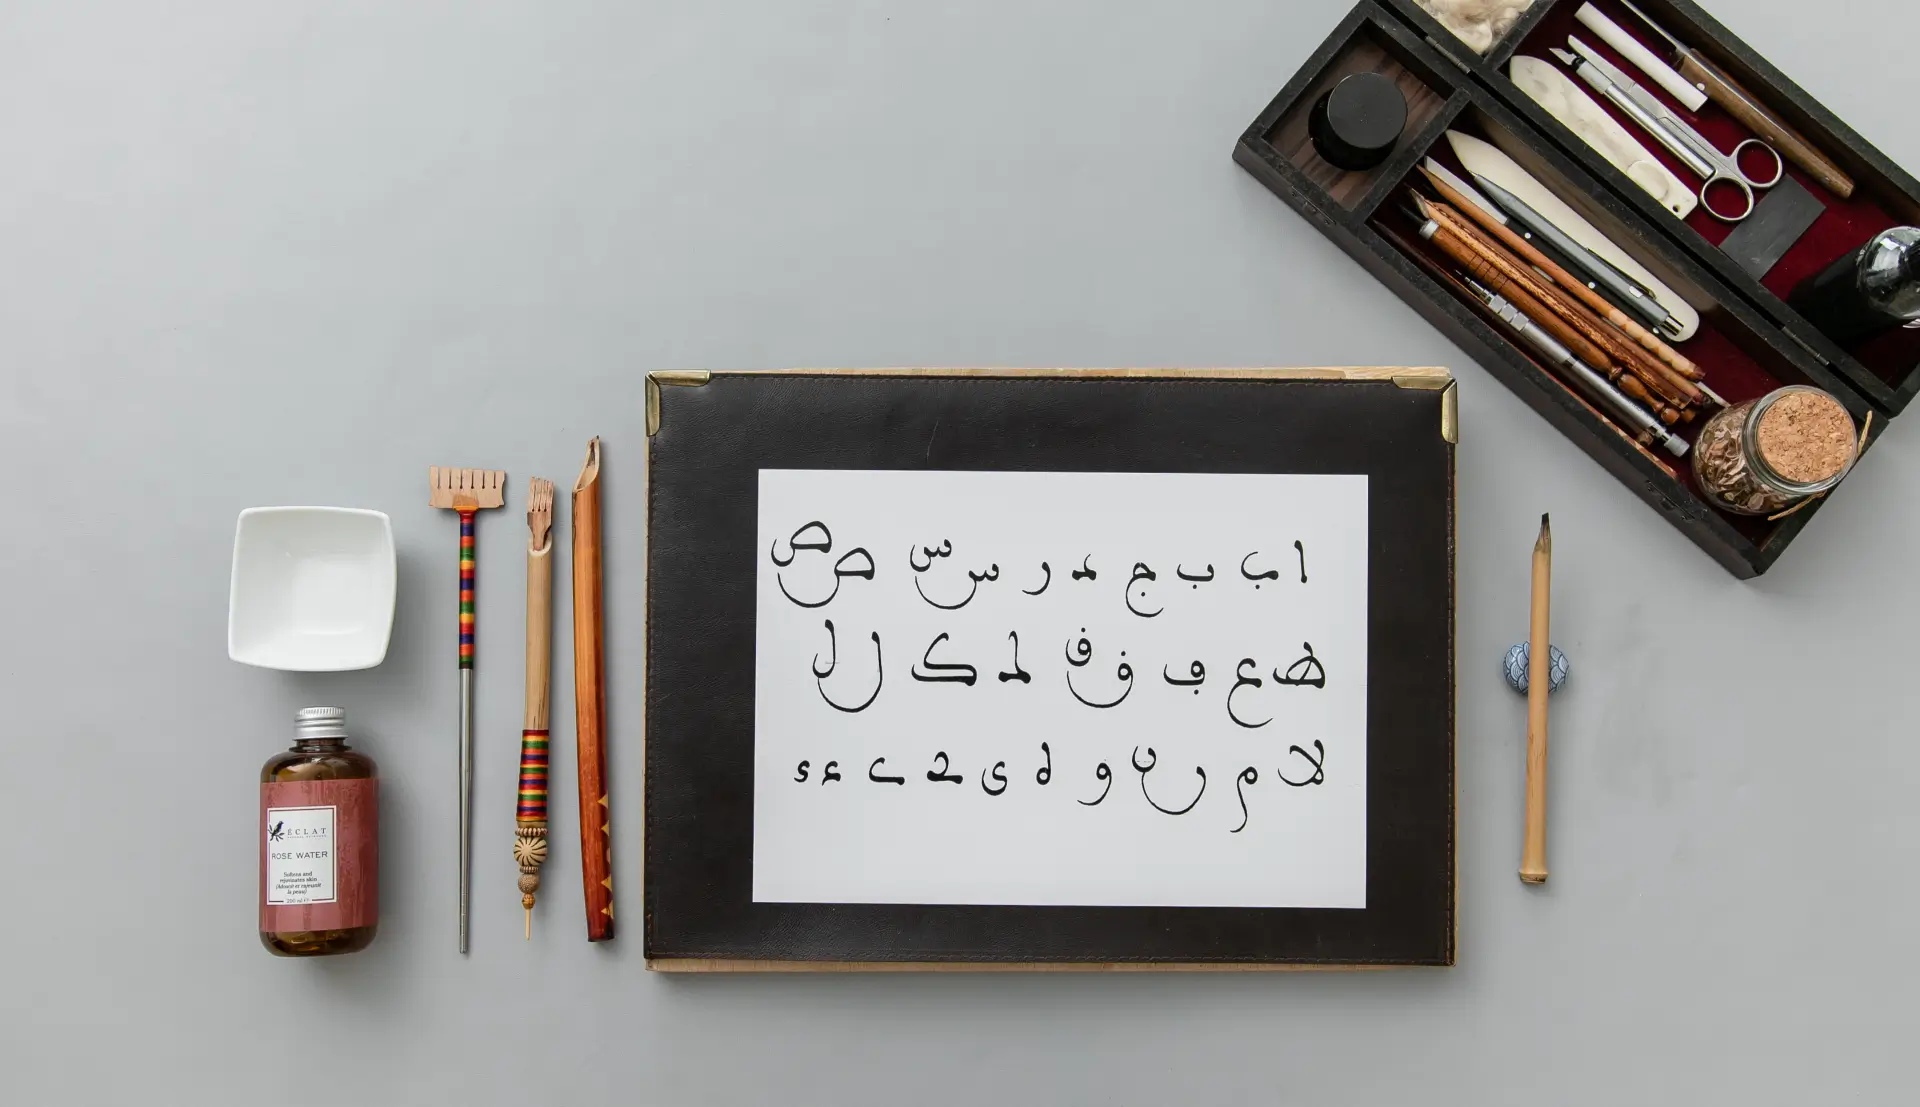 ا ب ب ج د ر س س ص ص
ھ ع ڢ ف ف ط ك ل ل
لا م ں ں و ه ى ے ے ء ء
ÉCLAT
ROSE WATER
Softens and
rejuvenates skin
(Adoucit et rajeunit
la peau)
200 ml ℮